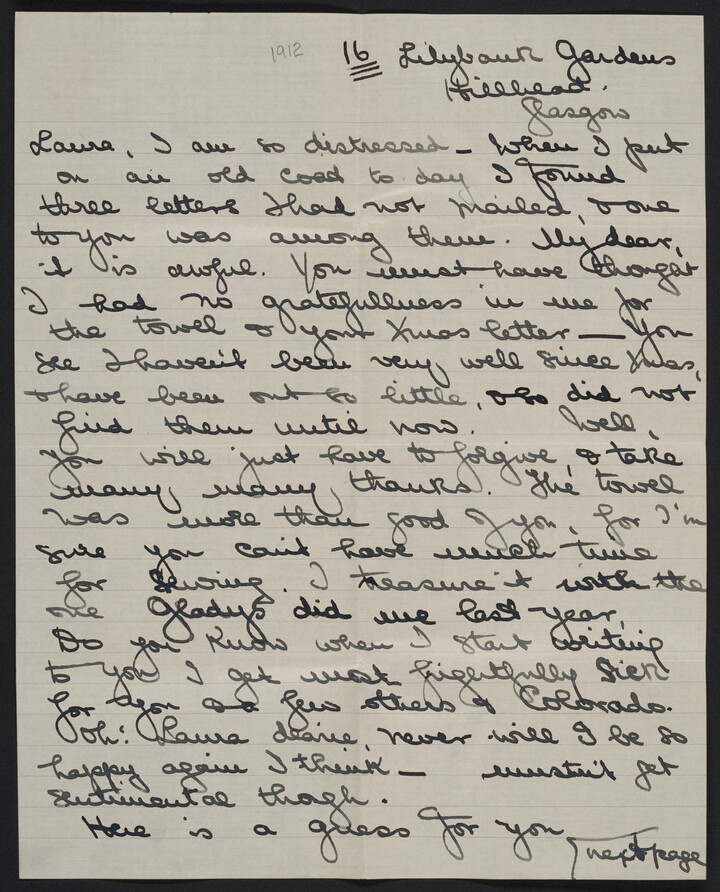 1912
16 Lilybank Gardens
Hillhead.
Glasgow
Laura, I am so distressed – When I put
on an old coat to day I found
three letters I had not mailed, & one
to you was among them. My dear,
it is awful. You must have thought
I had no gratefullness in me for
the towel & your Xmas letter — You
see I haven't been very well since Xmas,
& have been out so little, & so did not
find them until now. Well,
you will just have to forgive, & take
many, many, thanks. The towel
was more than good of you, for I'm
sure you can't have much time
for sewing. I treasure it with the
one Gladys did me last year.
Do you know when I start writing
to you I get most frightfully sick
for you & a few others & Colorado.
Oh! Laura dearie, never will I be so
happy again I think – mustn't get
sentimental though.
Here is a guess for you
next page